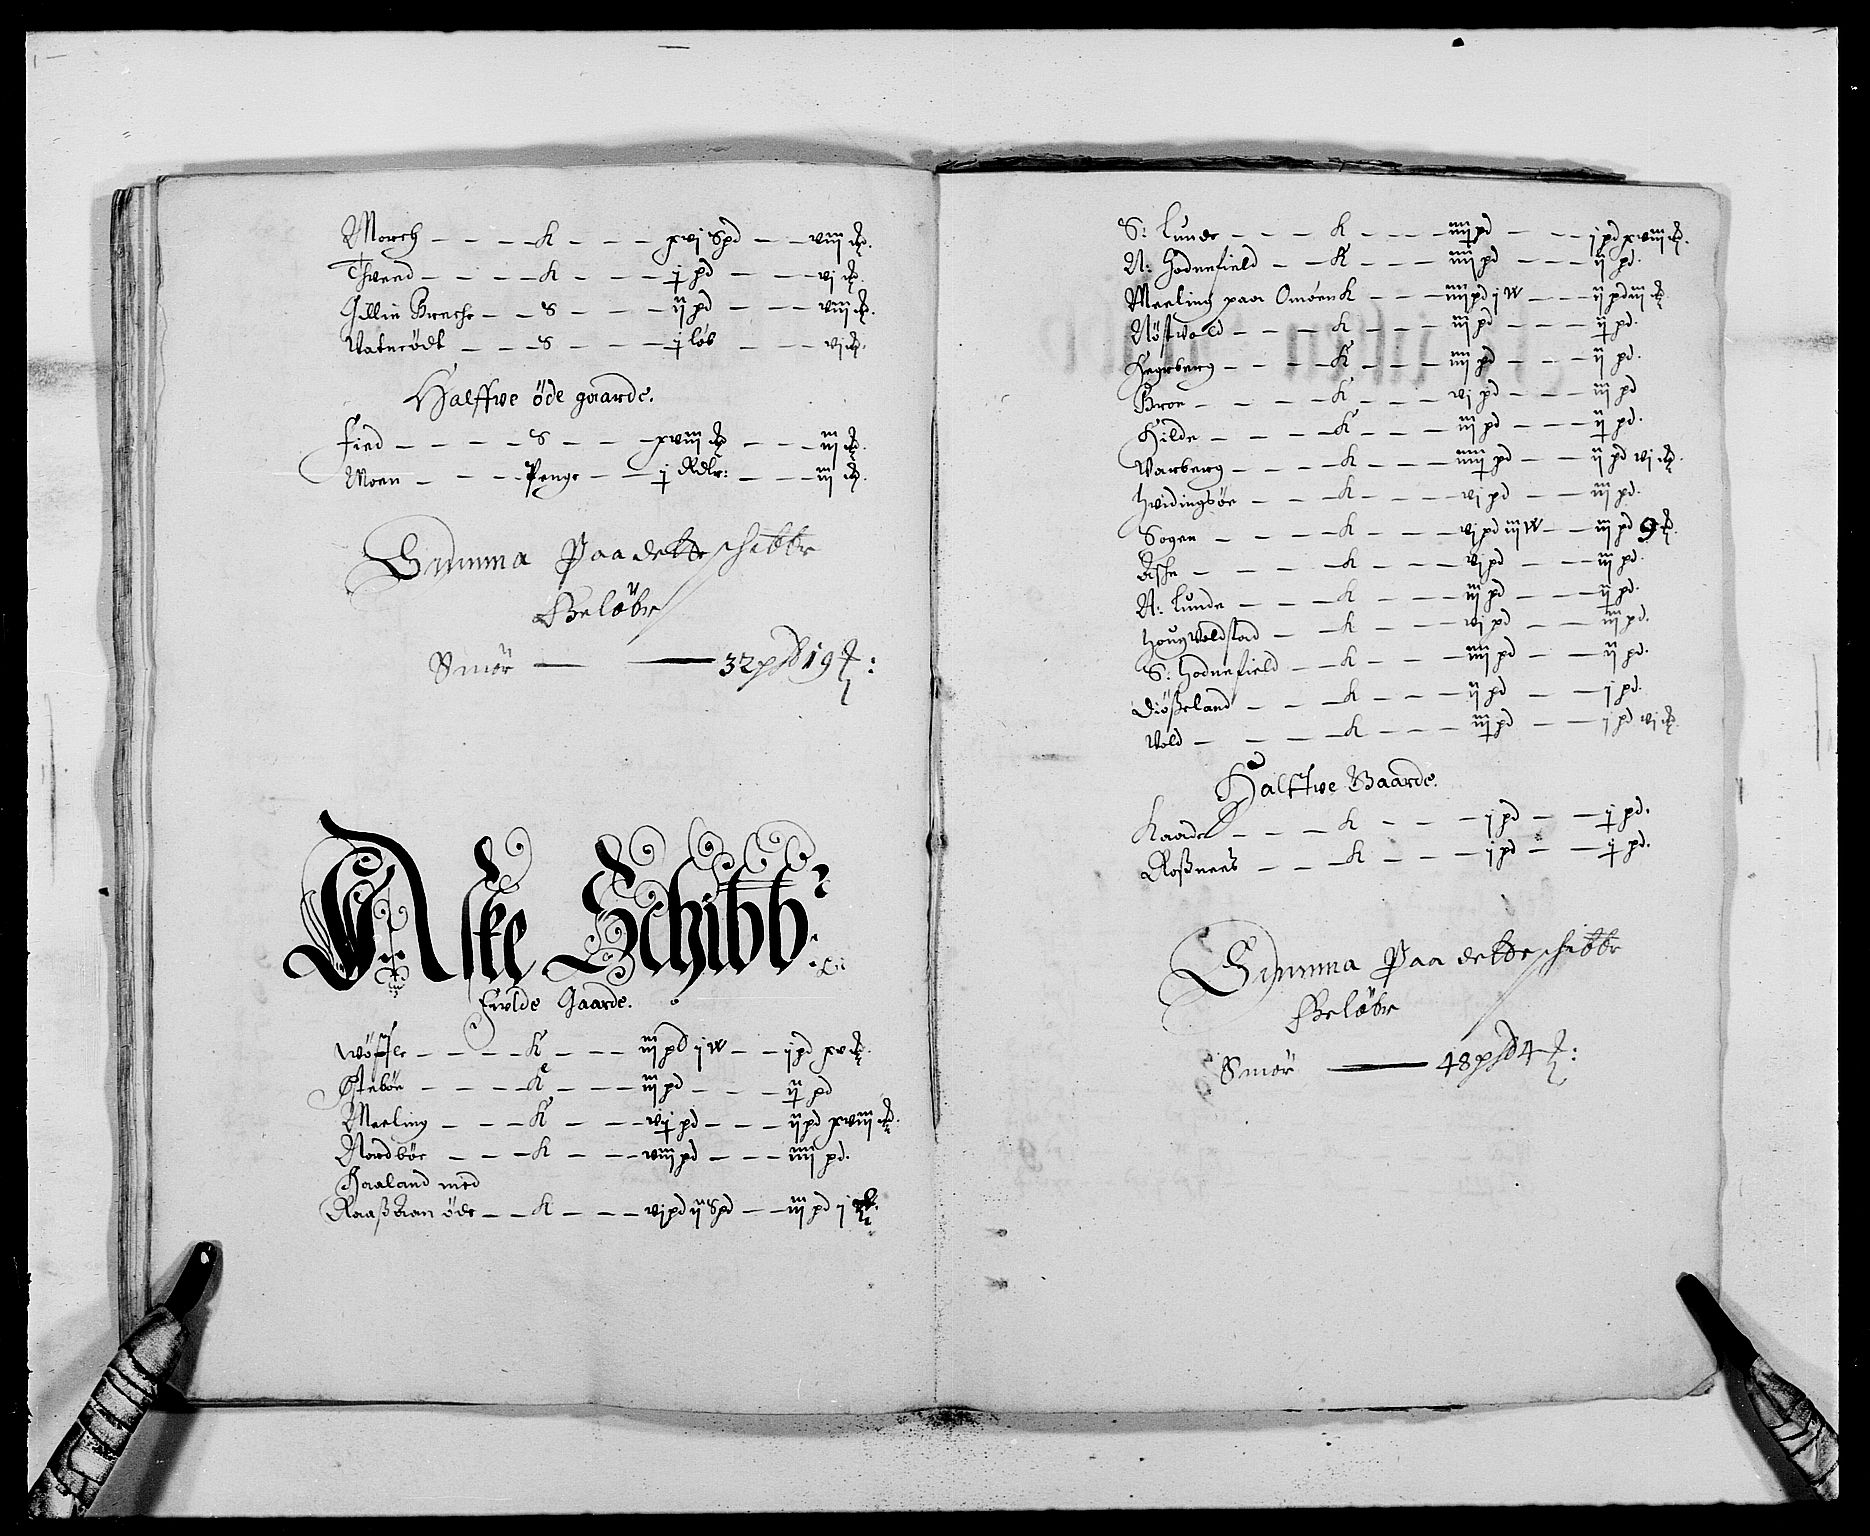 Morch – – – – K – – – xvj Spd – – – viij ℔.
Thveed – – – – K – – – j pd – – – vj ℔.
Jllin Breche – – S – – – ij pd – – – viij ℔.
Vatneödt – – – S – – – j löb – – – vj ℔.
Halffve öde gaarde.
Fied – – – – S – – – xviij ℔ – – – iij ℔
Moen – – – Penge – – j Rdlr: – – – iij ℔.
Summa Paa dette schibbr
Belöbr
Smör — — 32 pd 19 ℔:
Aske Schibbr:
Fulde Gaarde.
Wöfle – – – – K – – – iij pd j W – – j pd xv ℔.
Østeböe – – – – K – – – iij pd – – – ij pd
Meeling – – – – K – – – vij pd – – – ij pd xviij ℔.
Nordböe – – – K – – – viij pd – – – iiij pd.
Haaland med
Raaßkan öde – – K – – – vj pd ij Spd – – iij pd j ℔.
S: Lunde – – – – K – – – iij pd – – – j pd xviij ℔.
N: Hodnefield – – K – – – iiij pd – – – ij pd.
Meeling paa Omöen K – – – iiij pd j W – – – ij pd iij ℔.
Nöstvold – – – – K – – – iij pd – – – ij pd.
Hegrberg – – – – K – – – iiij pd – – – ij pd.
Broe – – – – K – – – vj pd – – – iij pd
Hilde – – – – K – – – iij pd – – – ij pd.
Varberg – – – – K – – – iiij pd – – – ij pd vj ℔.
Hvidingsöe – – – K – – – vj pd – – – iij pd.
Sogen – – – – K – – – vj pd iij W – – iij pd 9 ℔.
Aske – – – – K – – – vj pd – – – iij pd.
N: Lunde – – – – K – – – iij pd – – – ij pd.
Hougvoldstad – – K – – – vj pd – – – iij pd.
S: Hodnefield – – K – – – iiij pd – – – ij pd.
Diößeland – – – K – – – ij pd – – – j pd.
Vold – – – – K – – – iij pd – – – j pd vj ℔.
Halffve Gaarde.
Kaade – – – K – – – j pd – – – j pd.
Roßnees – – – K – – – j pd – – – j pd.
Summa Paa dette schibbr
Belöbr
Smör — 48 pd 4 ℔: